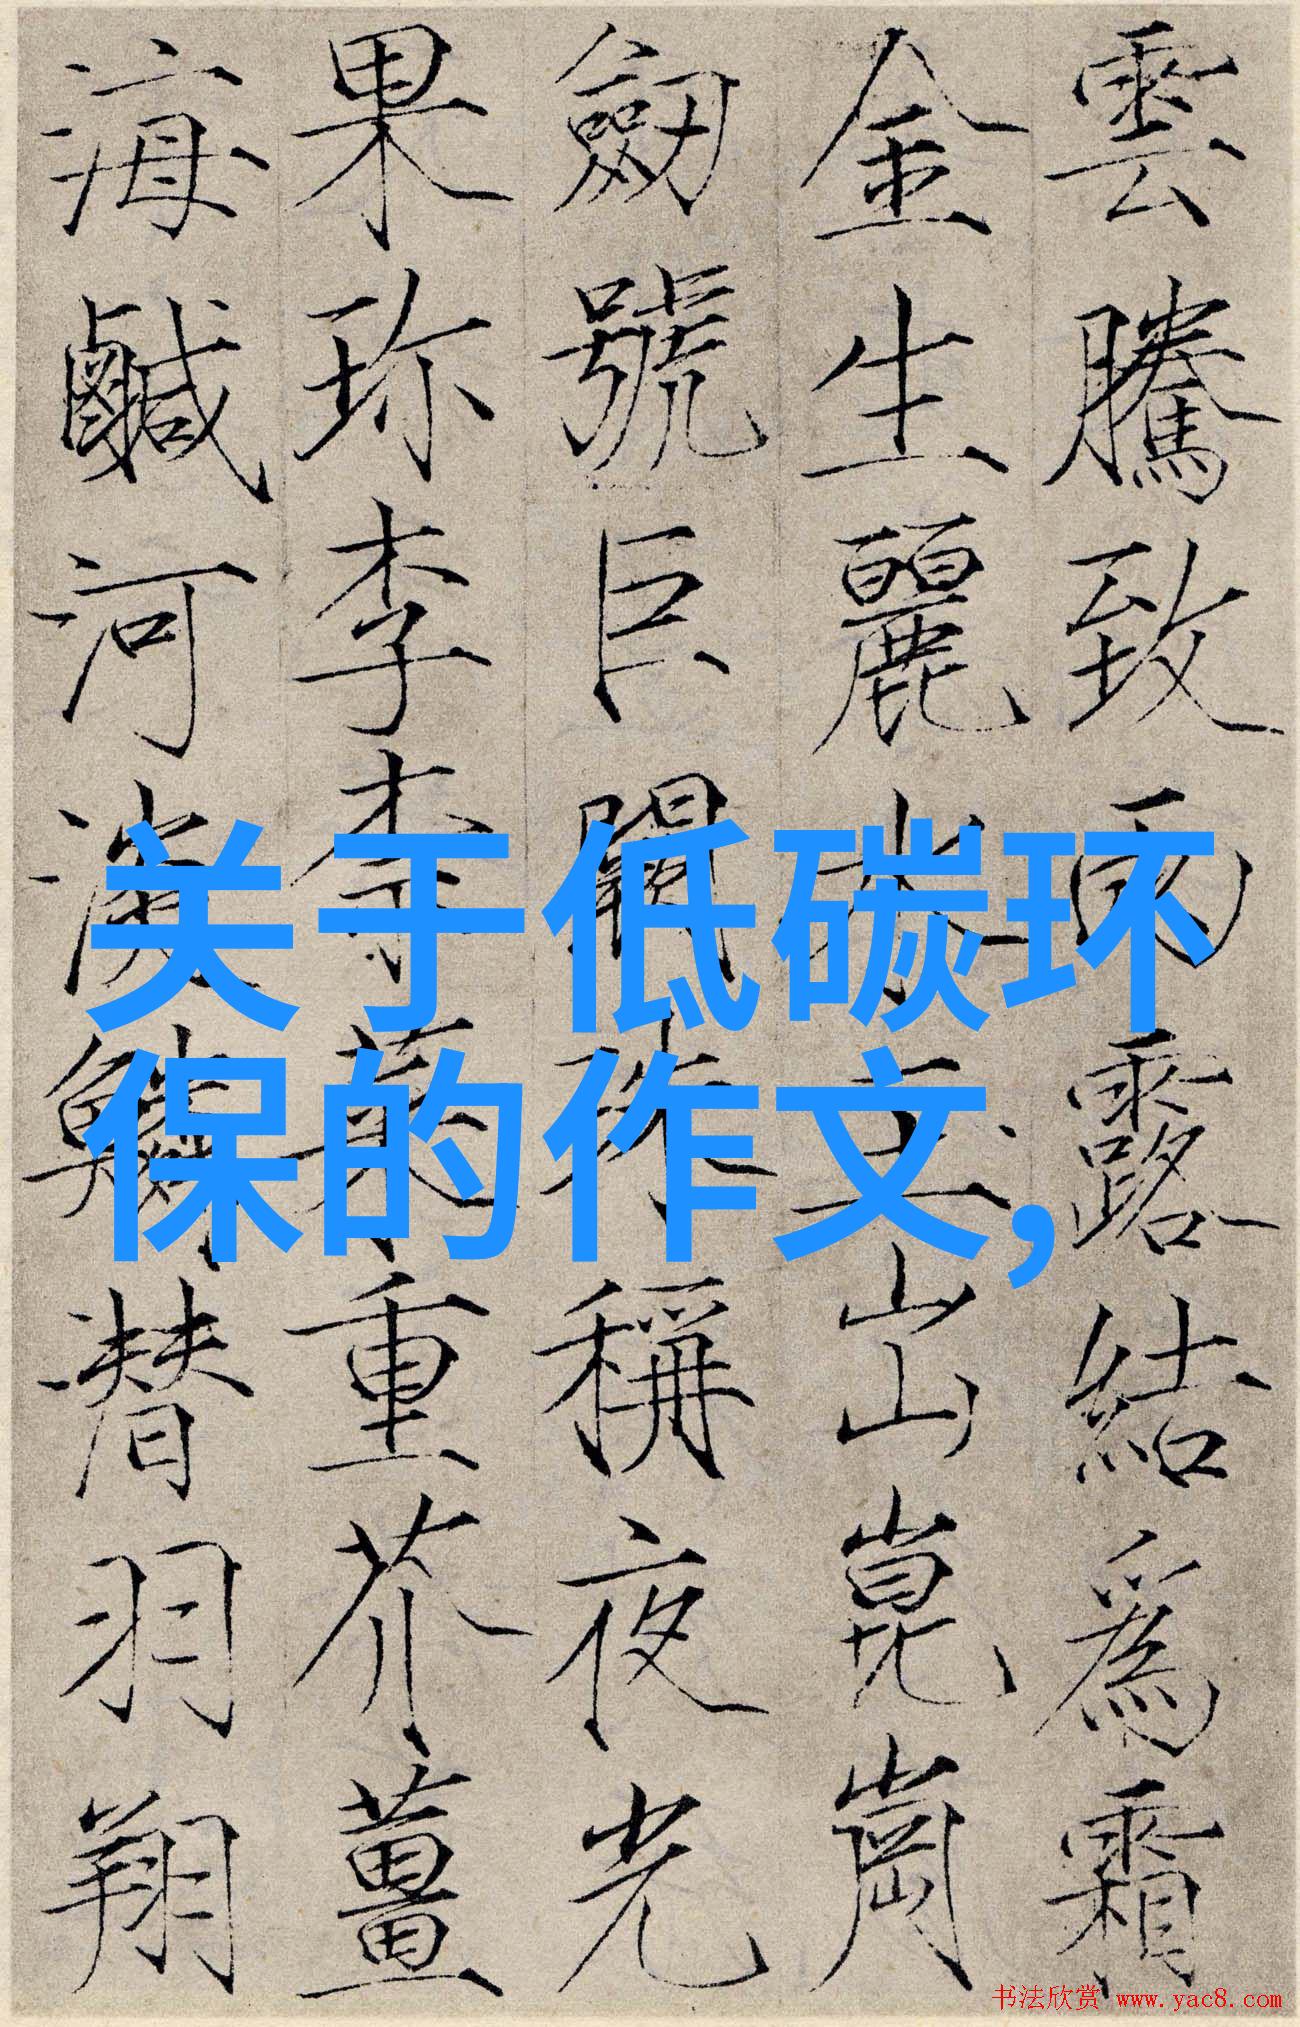 雲騰致雨露結爲霜
金生麗水玉出崑崗
劒號巨闕珠稱夜光
果珎李柰菜重芥薑
海鹹河淡鱗潜羽翔
关于低碳环
保的作文,
书法欣赏 www.yac8.com